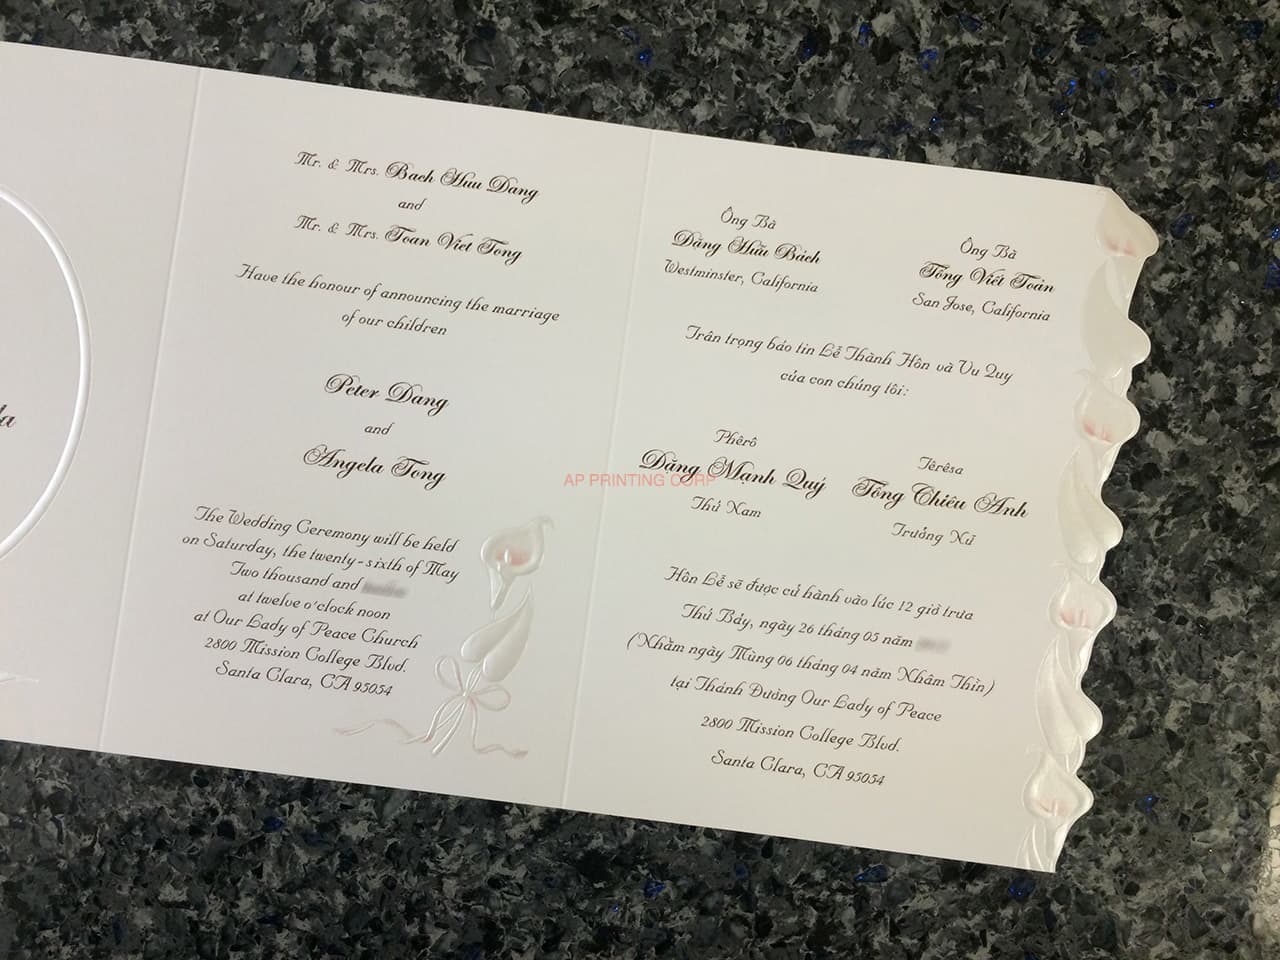 la
Mr. & Mrs. Bach Huu Dang
and
Mr. & Mrs. Toan Viet Tong
Have the honour of announcing the marriage
of our children
Peter Dang
and
Angela Tong
The Wedding Ceremony will be held
on Saturday, the twenty-sixth of May
Two thousand and
at twelve o'clock noon
at Our Lady of Peace Church
2800 Mission College Blvd.
Santa Clara, CA 95054
Ông Bà
Đặng Hữu Bách
Westminster, California
Ông Bà
Tống Viết Toản
San Jose, California
Trân trọng báo tin Lễ Thành Hôn và Vu Quy
của con chúng tôi:
Phêrô
Đặng Mạnh Quý
Thứ Nam
Têrêsa
Tống Chiêu Anh
Trưởng Nữ
Hôn Lễ sẽ được cử hành vào lúc 12 giờ trưa
Thứ Bảy, ngày 26 tháng 05 năm
(Nhằm ngày Mùng 06 tháng 04 năm Nhâm Thìn)
tại Thánh Đường Our Lady of Peace
2800 Mission College Blvd.
Santa Clara, CA 95054
AP PRINTING CORP